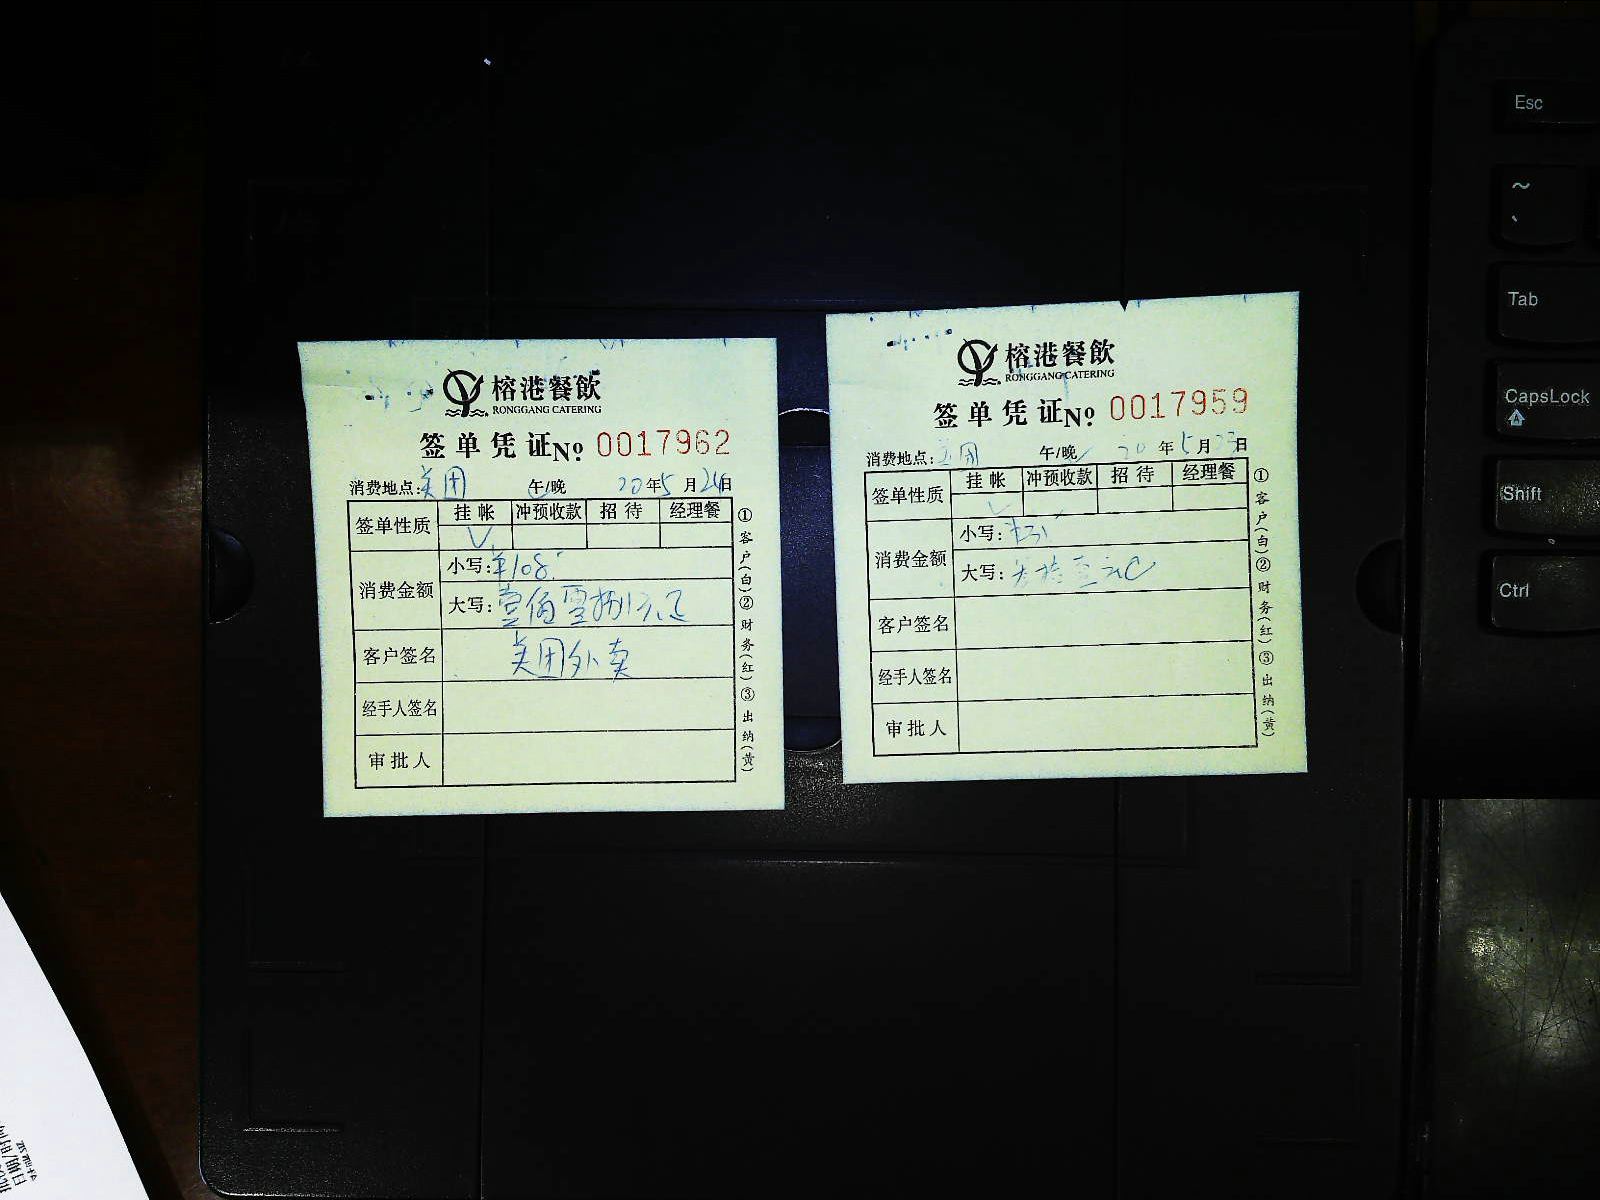 榕港餐飲
RONGGANG CATERING
签单凭证№ 0017962
消费地点:美团 午/晚 20年5月24日
签单性质 挂帐 冲预收款 招待 经理餐
√
消费金额 小写:¥108.
大写:壹佰零捌元正
客户签名 美团外卖
经手人签名
审批人
①客户(白)②财务(红)③出纳(黄)
榕港餐飲
RONGGANG CATERING
签单凭证№ 0017959
消费地点:美团 午/晚 20年5月23日
签单性质 挂帐 冲预收款 招待 经理餐
√
消费金额 小写:
大写:
客户签名
经手人签名
审批人
①客户(白)②财务(红)③出纳(黄)
Esc
~
Tab
CapsLock
Shift
Ctrl